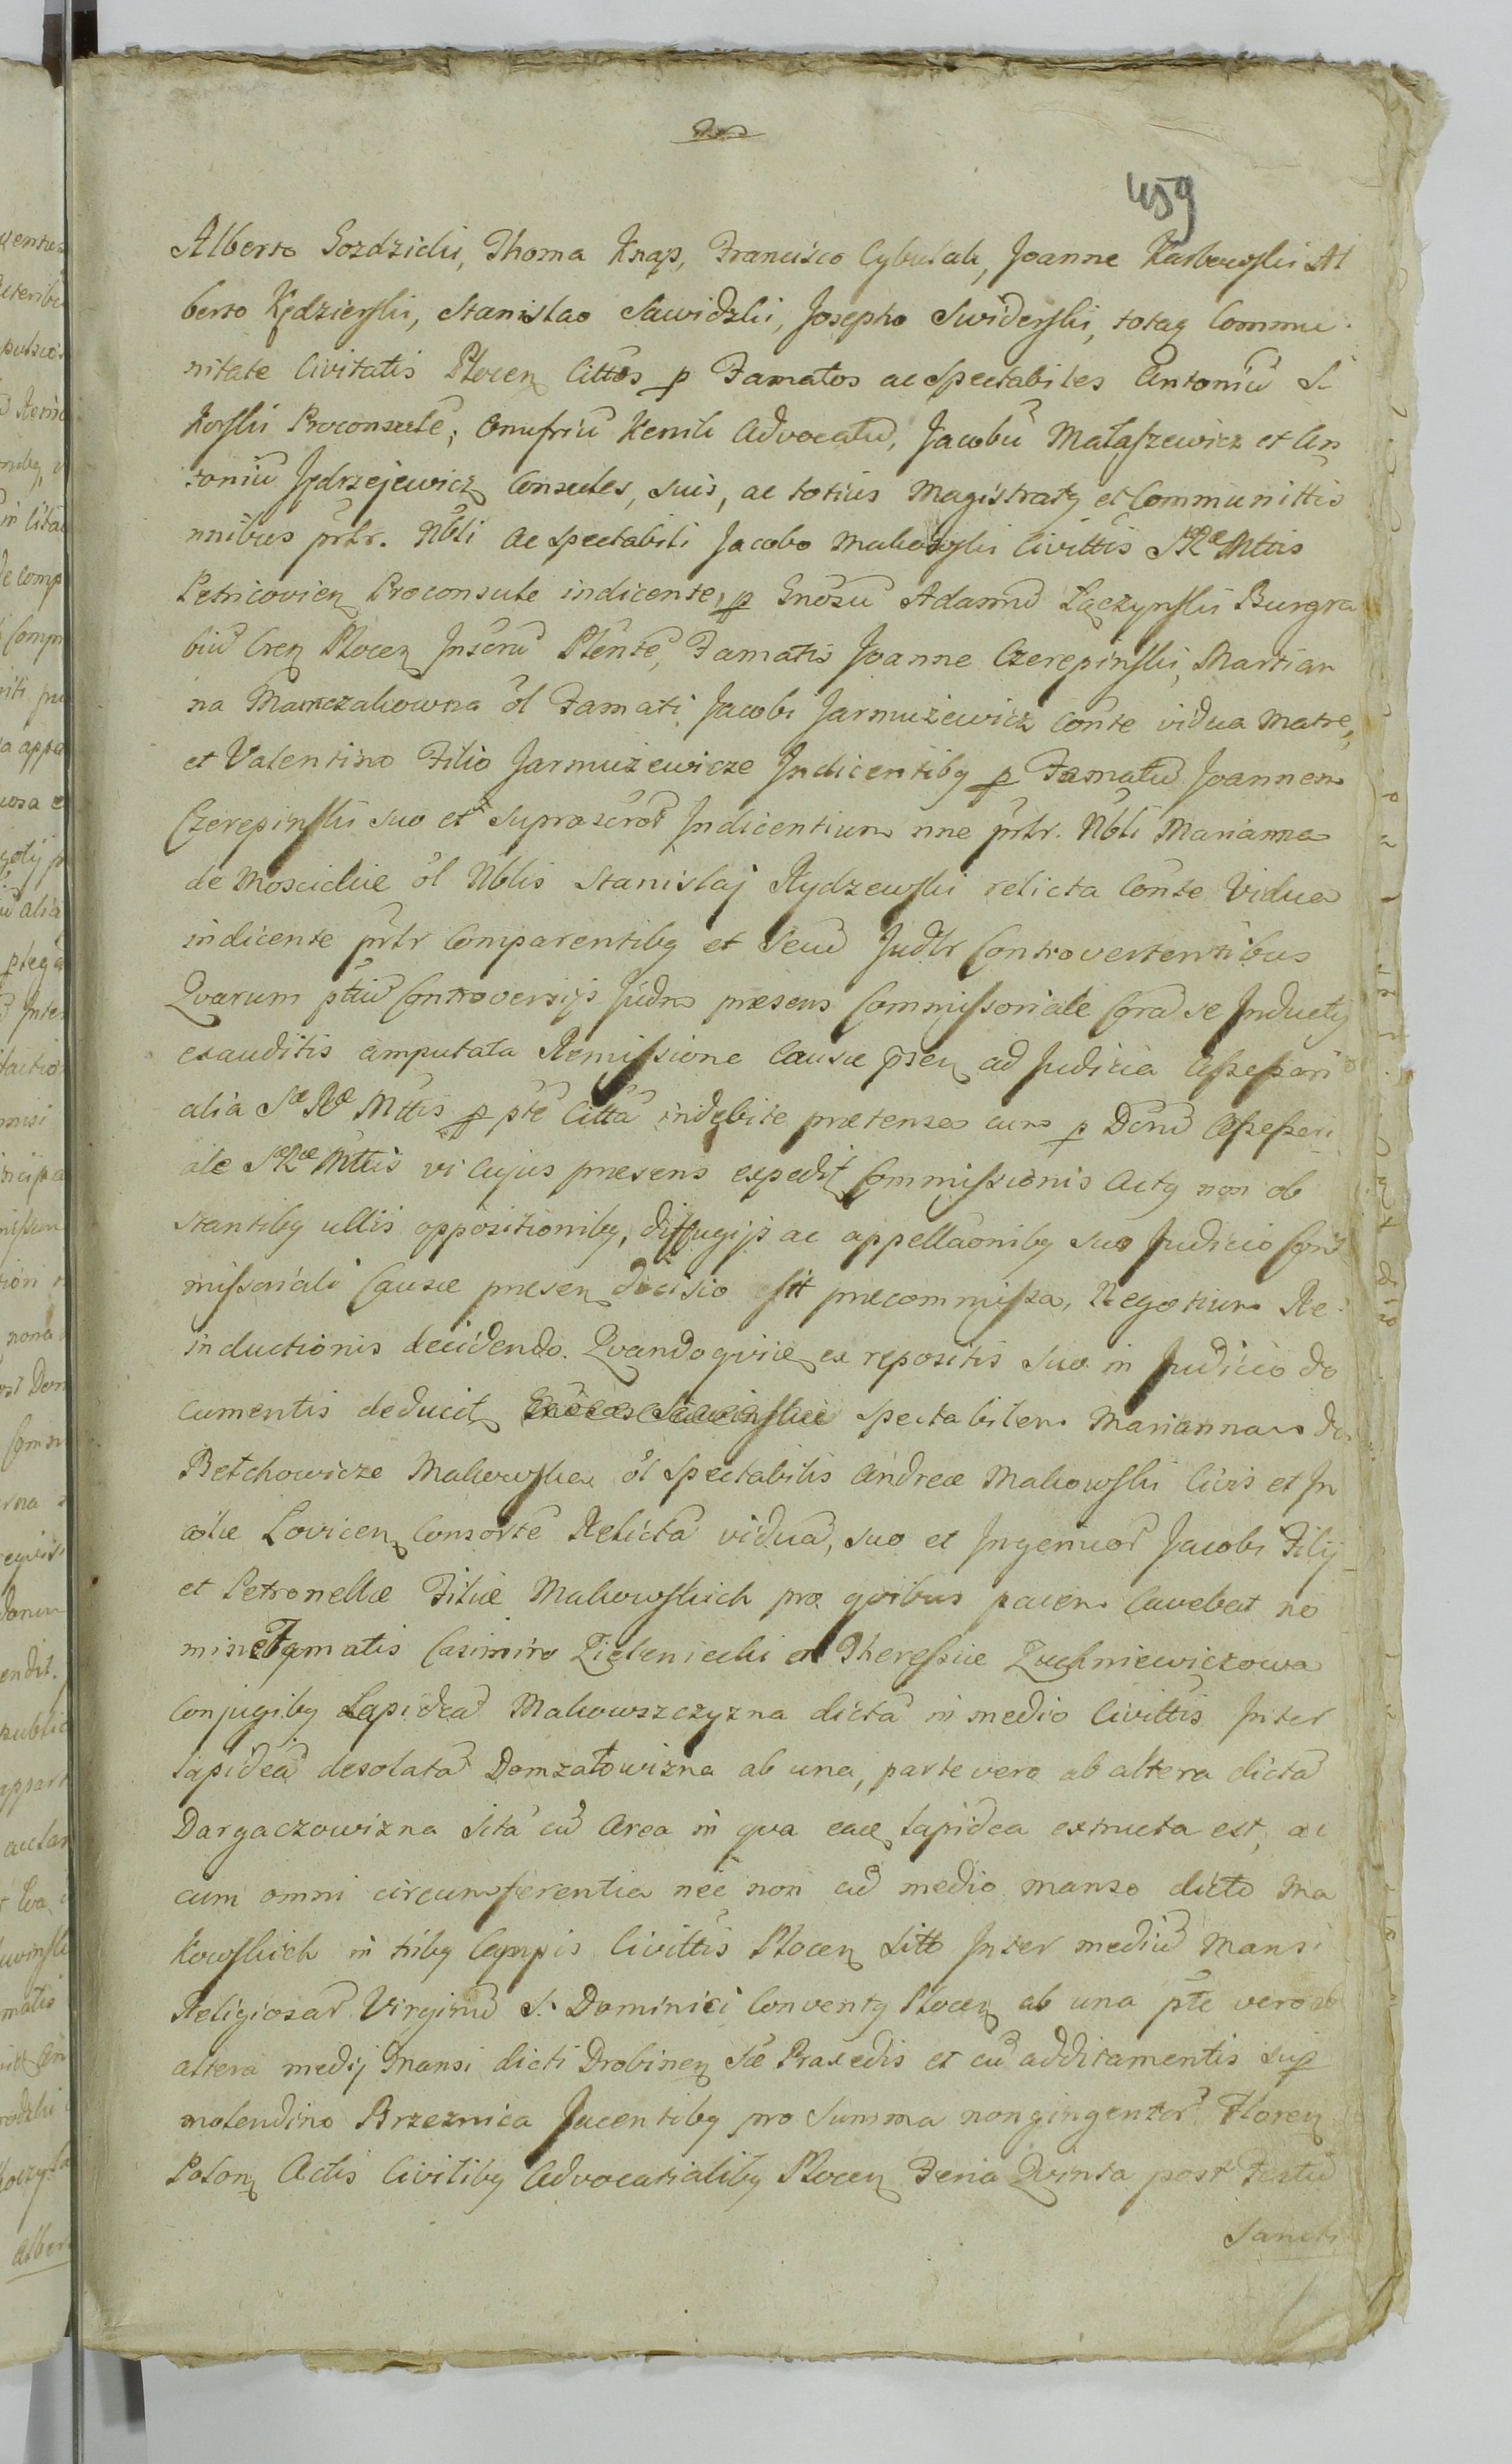 459
Alberto Gozdzicki, Thoma Knap, Francisco Cybulak, Joanne Karbowski Al
berto Kędzierski, Stanislao Sawidzki, Josepho Swiderski, totaq Commu
nitate Civitatis Plocen Cittos p Famatos ac Spectabiles Antoniũ Si
korski Proconsulẽ, Onufriũ Kenik Advocatũ, Jacobũ Małaszewicz et An
toniũ Jędrzejewicz Consules, suis, ac totius Magistratq et Communittis
nnibus prtr. Nbli ac Spectabili Jacobo Makowski Civittis SRæ Mttis
Petricovien Proconsule indicente, p Gnosũ Adamũ Łączynski Burgra
biũ Cren Plocen Juscrũ Plẽntẽ, Famatis Joanne Czerepinski, Marian
na Mamczakowna õl Famati Jacobi Jarmużewicz Conte vidua Matre,
et Valentino Filio Jarmużewicze Indicentibq p Famatũ Joannem
Czerepinski suo et suprascror Indicentium nne prtr. Nbli Marianna
de Moscickie õl Nblis Stanislaj Rydzewski relicta Conte Vidua
indicente prtr Comparentibq et Secũ Judlr Controvertentibus
Qvarum ptiũ Controversijs Judm præsens Commissoriale Cora se Inductis
exauditis amputata Remissione Causæ pseñ ad Judicia Assessori
alia Sæ Ræ Mttis p pte Citta indebite prætensa cum p Dcrũ Assessori
ale SRæ Mttis vi Cujus præsens expedit Commissionis Actq non ob
stantibq ullis oppositionibq, diffugijs ac appellaonibq suo Judicio Com
missoriali Causæ præsen decisio sit præcommissa, Negotium Re
inductionis decidendo. Qvandoqvide ex repositis suo in Judicio do
cumentis deducit Spectabilem Mariannam de
Bełchowicze Makowska õl Spectabilis Andreæ Makowski Civis et In
colæ Lovicen Consortẽ Relictã viduã, suo et Ingenuor Jacobi Filij
et Petronellæ Filiæ Makowskich pro qvibus pacem Cavebat no
mine Famatis Casimiro Zieleniecki et Theressiæ Zuchniewiczowa
Conjugibq Lapideã Makowszczyzna dictã in medio Civittis Inter
lapideã desolatã Domzałowizna ab una, parte vero ab altera dictã
Dargaczowizna sitã cũ Area in qva eadẽ lapidea extructa est, ac
cum omni circumferentia nec non cũ medio manso dicto Ma
kowskich in tribq Campis Civittis Plocen sito Inter mediũ Mansi
Religiosar Virginũ S. Dominici Conventq Plocen ab una pte vero ab
altera medij Mansi dicti Drobinen Sæ Praxedis et cũ additamentis sup
molendino Brzeznica Jacentibq pro Summa nongingentor Floren
Polon Actis Civilibq Advocatialibq Plocen Feria Qvinta post Festũ
Sancti